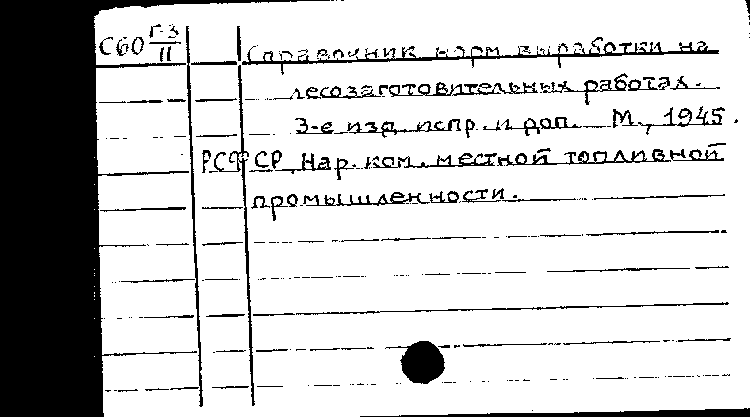 С60 Г-3/11 Справочник норм выработки на
лесозаготовительных работах.
3-е изд. испр. и доп. М., 1945.
РСФСР. Нар. ком. местной топливной
промышленности.